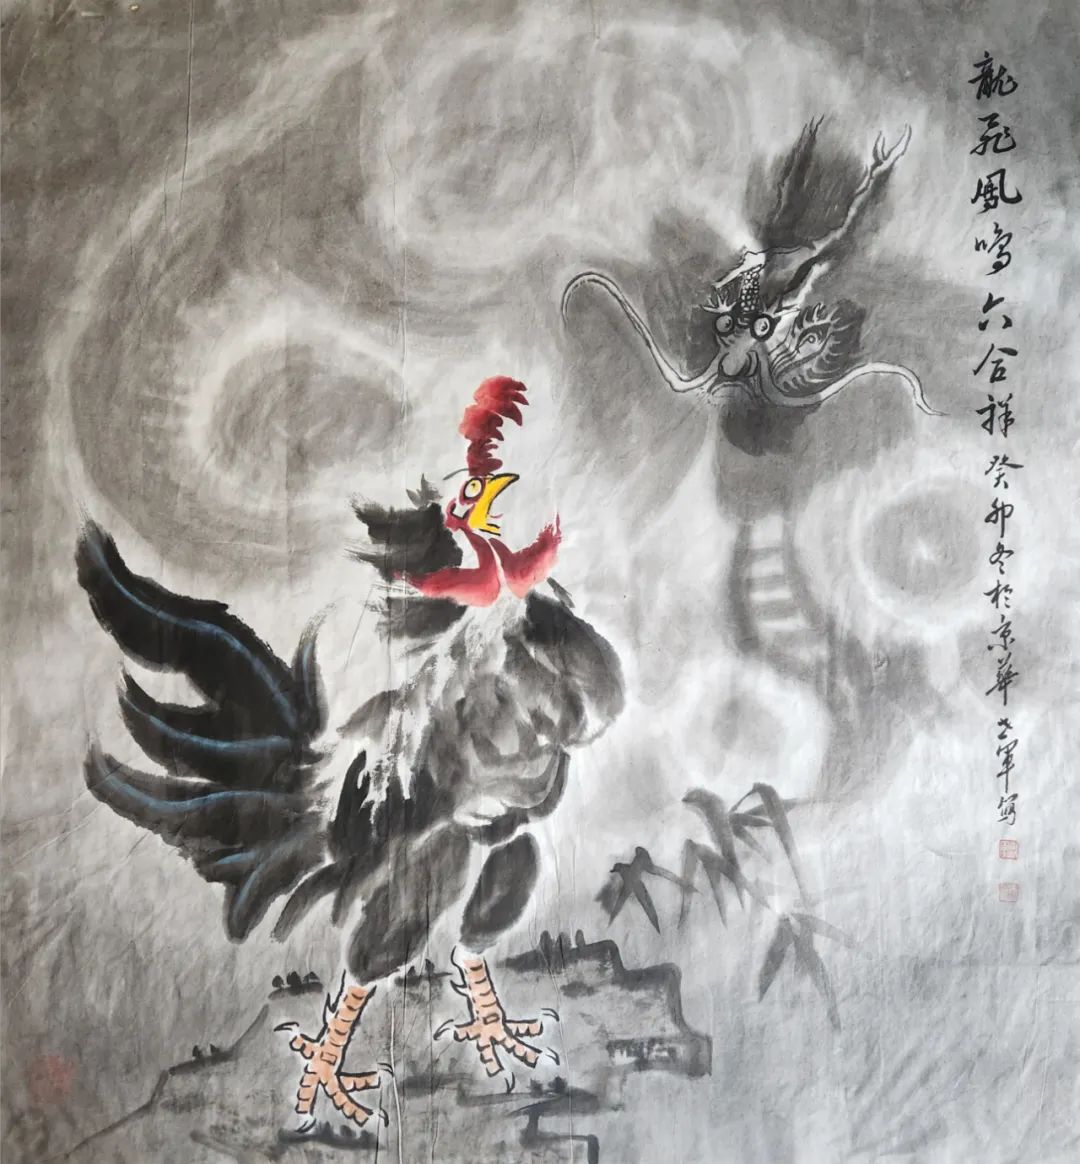 龍飛鳳鳴六合祥癸卯冬於京華老軍寫